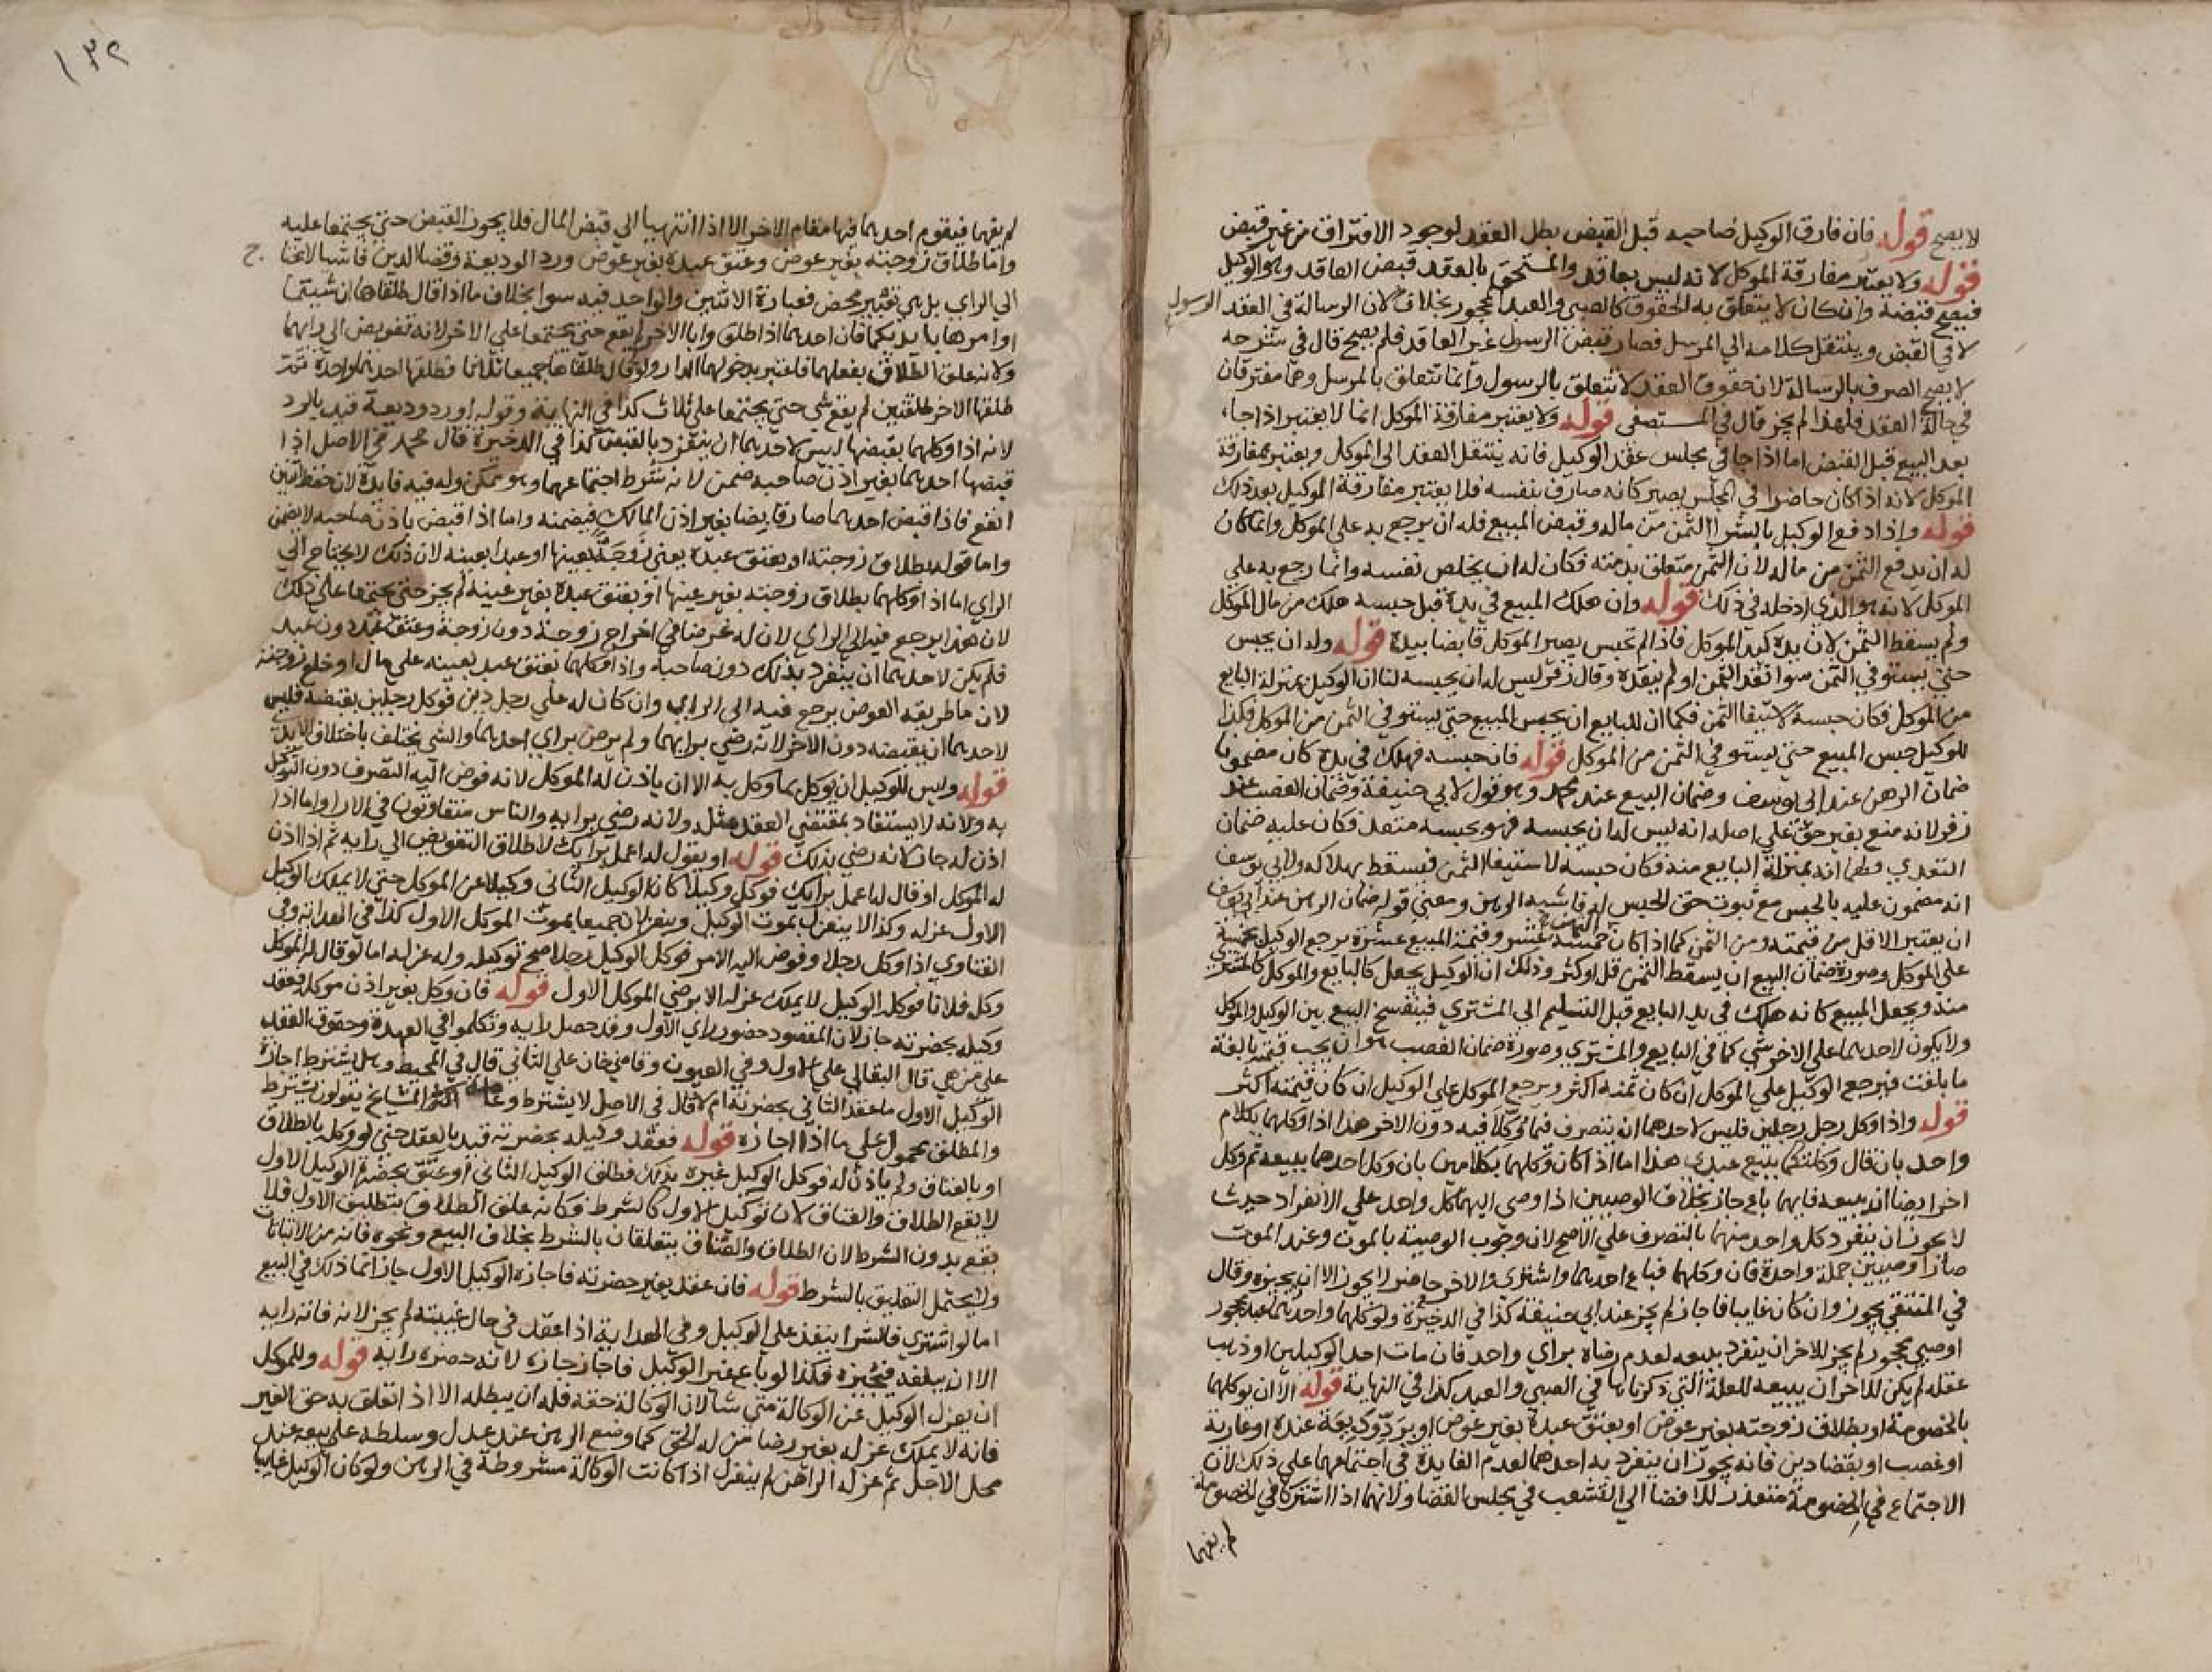 لا يصح قوله فان فارق الوكيل صاحبه قبل القبض بطل العقد لوجود الافتراق من غير قبض
قوله ولا يعتبر مفارقة الموكل لانه ليس بعاقد والمستحق بالعقد قبض العاقد وهو الوكيل
فيصح قبضه وان كان لا يتعلق به الحقوق كالصبي والعبد المحجور بخلاف الرسول لان الرسالة في العقد
لا في القبض وينتقل كلامه الي المرسل فصار قبض الرسول غير العاقد فلم يصح قال في شرحه
لا يصح الصرف بالرسالة لان حقوق العقد لا تتعلق بالرسول وانما تتعلق بالمرسل وهما مفترقان
في حالة العقد فلهذا لم يجز قال في المستصفى قوله ولا يعتبر مفارقة الموكل انما لا يعتبر اذا جا
بعد البيع قبل القبض اما اذا جا في مجلس عقد الوكيل فانه ينتقل العقد الى الموكل ويعتبر بمفارقة
الموكل لانه اذا كان حاضرا في المجلس يصير كانه صارف بنفسه فلا يعتبر مفارقة الوكيل بعد ذلك
قوله واذا دفع الوكيل بالشرا الثمن من ماله وقبض المبيع فله ان يرجع به علي الموكل وانما كان
له ان يدفع الثمن من ماله لان الثمن متعلق بذمته فكان له ان يخلص نفسه وانما رجع به علي
الموكل لانه هو الذي ادخله في ذلك قوله وان هلك المبيع في يده قبل حبسه هلك من مال الموكل
ولم يسقط الثمن لان يده كيد الموكل فاذا لم يحبس يصير الموكل قابضا بيده قوله وله ان يحبس
حتي يستوفي الثمن سوا نقد الثمن او لم ينقده وقال زفر ليس له ان يحبسه لنا ان الوكيل بمنزلة البايع
من الموكل فكان حبسه لاستيفا الثمن فكما ان للبايع ان يحبس المبيع حتي يستوفي الثمن من الموكل فكذا
للوكيل حبس المبيع حتي يستوفي الثمن من الموكل قوله فان حبسه فهلك في يده كان مضمونا
ضمان الرهن عند ابي يوسف وضمان البيع عند محمد وهو قول لابي حنيفة وضمان الغصب عند
زفر لانه منع بغير حق علي اصله انه ليس له ان يحبسه فهو بحبسه متعد فكان عليه ضمان
التعدي ولهما انه بمنزلة البايع منه فكان حبسه لاستيفا الثمن فيسقط بهلاكه ولابي يوسف
انه مضمون عليه بالحبس مع ثبوت حق الحبس له فاشبه الرهن ومعنى قوله ضمان الرهن عند ابي يوسف
ان يعتبر الاقل من قيمته ومن الثمن كما اذا كان الثمن خمسة عشر وقيمة المبيع عشرة يرجع الوكيل بخمسة
علي الموكل وصورة ضمان البيع ان يسقط الثمن قل او كثر وذلك ان الوكيل يجعل كالبايع والموكل كالمشتري
منه ويجعل المبيع كانه هلك في يد البايع قبل التسليم الى المشتري فينفسخ البيع بين الوكيل والموكل
ولا يكون لاحدهما علي الاخر شي كما في البايع والمشتري وصورة ضمان الغصب هو ان يجب قيمته بالغة
ما بلغت فيرجع الوكيل علي الموكل ان كان ثمنه اكثر ويرجع الموكل علي الوكيل ان كان قيمته اكثر
قوله واذا وكل رجل رجلين فليس لاحدهما ان يتصرف فيما وكلا فيه دون الاخر هذا اذا وكلهما بكلام
واحد بان قال وكلتكما ببيع عبدي هذا اما اذا كان وكلهما بكلامين بان وكل احدهما ببيعه ثم وكل
اخر ايضا ان يبيعه فايهما باع جاز بخلاف الوصيين اذا اوصى اليهما كل واحد علي الانفراد حيث
لا يجوز ان ينفرد كل واحد منهما بالتصرف علي الاصح لان وجوب الوصية بالموت وعند الموت
صارا وصيين جملة واحدة فان وكلهما فباع احدهما واشترى والاخر حاضر لا يجوز الا ان يجيزه وقال
في المنتقي يجوز وان كان غايبا فاجاز لم يجز عند ابي حنيفة كذا في الذخيرة ولو وكلهما واحدهما عبد محجور
او صبي محجور لم يجز للاخر ان ينفرد ببيعه لعدم رضاه براي واحد فان مات احد الوكيلين او ذهب
عقله لم يكن للاخر ان يبيعه للعلة التي ذكرناها في الصبي والعبد كذا في النهاية قوله الا ان يوكلهما
بالخصومة او بطلاق زوجته بغير عوض او بعتق عبده بغير عوض او برد وديعة عنده او عارية
او غصب او بقضا دين فانه يجوز ان ينفرد به احدهما لعدم الفايدة في اجتماعهما علي ذلك لان
الاجتماع في الخصومة متعذر للافضا الي الشغب في مجلس القضا ولانهما اذا اشتركا في الخصومة
لم يفهما
١٣٢
لم يفهما فيقوم احدهما فيها مقام الاخر الا اذا انتهيا الي قبض المال فلا يجوز القبض حتي يجتمعا عليه
واما طلاق زوجته بغير عوض وعتق عبده بغير عوض ورد الوديعة وقضا الدين فاشيا لا يحتاج
الي الراي بل هي تعبير محض فعبارة الاثنين والواحد فيه سوا بخلاف ما اذا قال طلقاها ان شيتما
او امرها بايديكما فان احدهما اذا طلق وابا الاخر لم يقع حتي يجتمعا علي الاخر لانه تفويض الى رايهما
ولانه علق الطلاق بفعلهما فاعتبر بدخولهما الدار ولو قال طلقاها جميعا ثلاثا فطلقها احدهما واحدة ثم
طلقها الاخر طلقتين لم يقع شي حتي يجتمعا علي ثلاث كذا في النهاية وقوله او رد وديعة قيد بالرد
لانه اذا وكلهما بقبضها ليس لاحدهما ان ينفرد بالقبض كذا في الذخيرة قال محمد في الاصل اذا
قبضها احدهما بغير اذن صاحبه ضمن لانه شرط اجتماعهما وهو ممكن وله فيه فايدة لان حفظ اثنين
انفع فاذا قبض احدهما صار قابضا بغير اذن المالك فيضمنه واما اذا قبض باذن صاحبه لا يضمن
واما قوله بطلاق زوجته او بعتق عبده يعني زوجة بعينها او عبدا بعينه لان ذلك لا يحتاج الي
الراي اما اذا وكلهما بطلاق زوجته بغير عينها او بعتق عبده بغير عينه لم يجز حتي يجتمعا علي ذلك
لان هذا يرجع فيه الى الراي لان له غرضا في اخراج زوجة دون زوجة وعتق عبد دون عبد
فلم يكن لاحدهما ان ينفرد بذلك دون صاحبه واذا وكلهما بعتق عبد بعينه علي مال او خلع زوجته
لان ما طريقه العوض يرجع فيه الى الراي وان كان له علي رجل دين فوكل رجلين بقبضه فليس
لاحدهما ان يقبضه دون الاخر لانه رضي برايهما ولم يرض براي احدهما والشي يختلف باختلاف الايدي
قوله وليس للوكيل ان يوكل بما وكل به الا ان ياذن له الموكل لانه فوض اليه التصرف دون التوكيل
به ولانه لا يستفاد بمقتضي العقد مثله ولانه رضي برايه والناس متفاوتون في الارا واما اذا
اذن له جاز لانه رضي بذلك قوله او يقول له اعمل برايك لاطلاق التفويض الي رايه ثم اذا اذن
له الموكل او قال له اعمل برايك فوكل وكيلا كان الوكيل الثاني وكيلا عن الموكل حتي لا يملك الوكيل
الاول عزله وكذا لا ينعزل بموت الوكيل وينعزلان جميعا بموت الموكل الاول كذا في الهداية وفي
الفتاوي اذا وكل رجلا وفوض اليه الامر فوكل الوكيل رجلا صح توكيله وله عزله اما لو قال له الموكل
وكل فلانا فوكل الوكيل لا يملك عزله الا برضي الموكل الاول قوله فان وكل بغير اذن موكله فعقد
وكيله بحضرته جاز لان المقصود حضور راي الاول وقد حصل رايه وتكلموا في العهدة وحقوق العقد
علي من هي قال البقالي علي الاول وفي العيون وقاضي خان علي الثاني قال في المحيط وهل يشترط اجازة
الوكيل الاول ما عقد الثاني بحضرته ام لا قال في الاصل لا يشترط وعامة المشايخ يقولون يشترط
والمطلق محمول علي ما اذا اجازه قوله فعقد وكيله بحضرته قيد بالعقد حتي لو وكله بالطلاق
او بالعتاق ولم ياذن له فوكل الوكيل غيره بذلك فطلق الوكيل الثاني او عتق بحضرة الوكيل الاول
لا يقع الطلاق والعتاق لان توكيل الاول كالشرط فكانه علق الطلاق بتطليق الاول فلا
يقع بدون الشرط لان الطلاق والعتاق يتعلقان بالشرط بخلاف البيع ونحوه فانه من الاثباتات
ولا يحتمل التعليق بالشرط قوله فان عقد بغير حضرته فاجازه الوكيل الاول جاز انما ذلك في البيع
اما لو اشتري فالشرا ينفذ علي الوكيل وفي الهداية اذا عقد في حال غيبته لم يجز لانه فاته رايه
الا ان يبلغه فيجيزه فكذا لو باع غير الوكيل فاجاز جازه لانه حضره رايه قوله وللموكل
ان يعزل الوكيل عن الوكالة متي شا لان الوكالة حقه فله ان يبطله الا اذا تعلق به حق الغير
فانه لا يملك عزله بغير رضا من له الحق كما وضع الرهن عند عدل وسلطه علي بيعه عند
محل الاجل ثم عزله الراهن لم ينعزل اذا كانت الوكالة مشروطة في الرهن ولو كان الوكيل غايبا